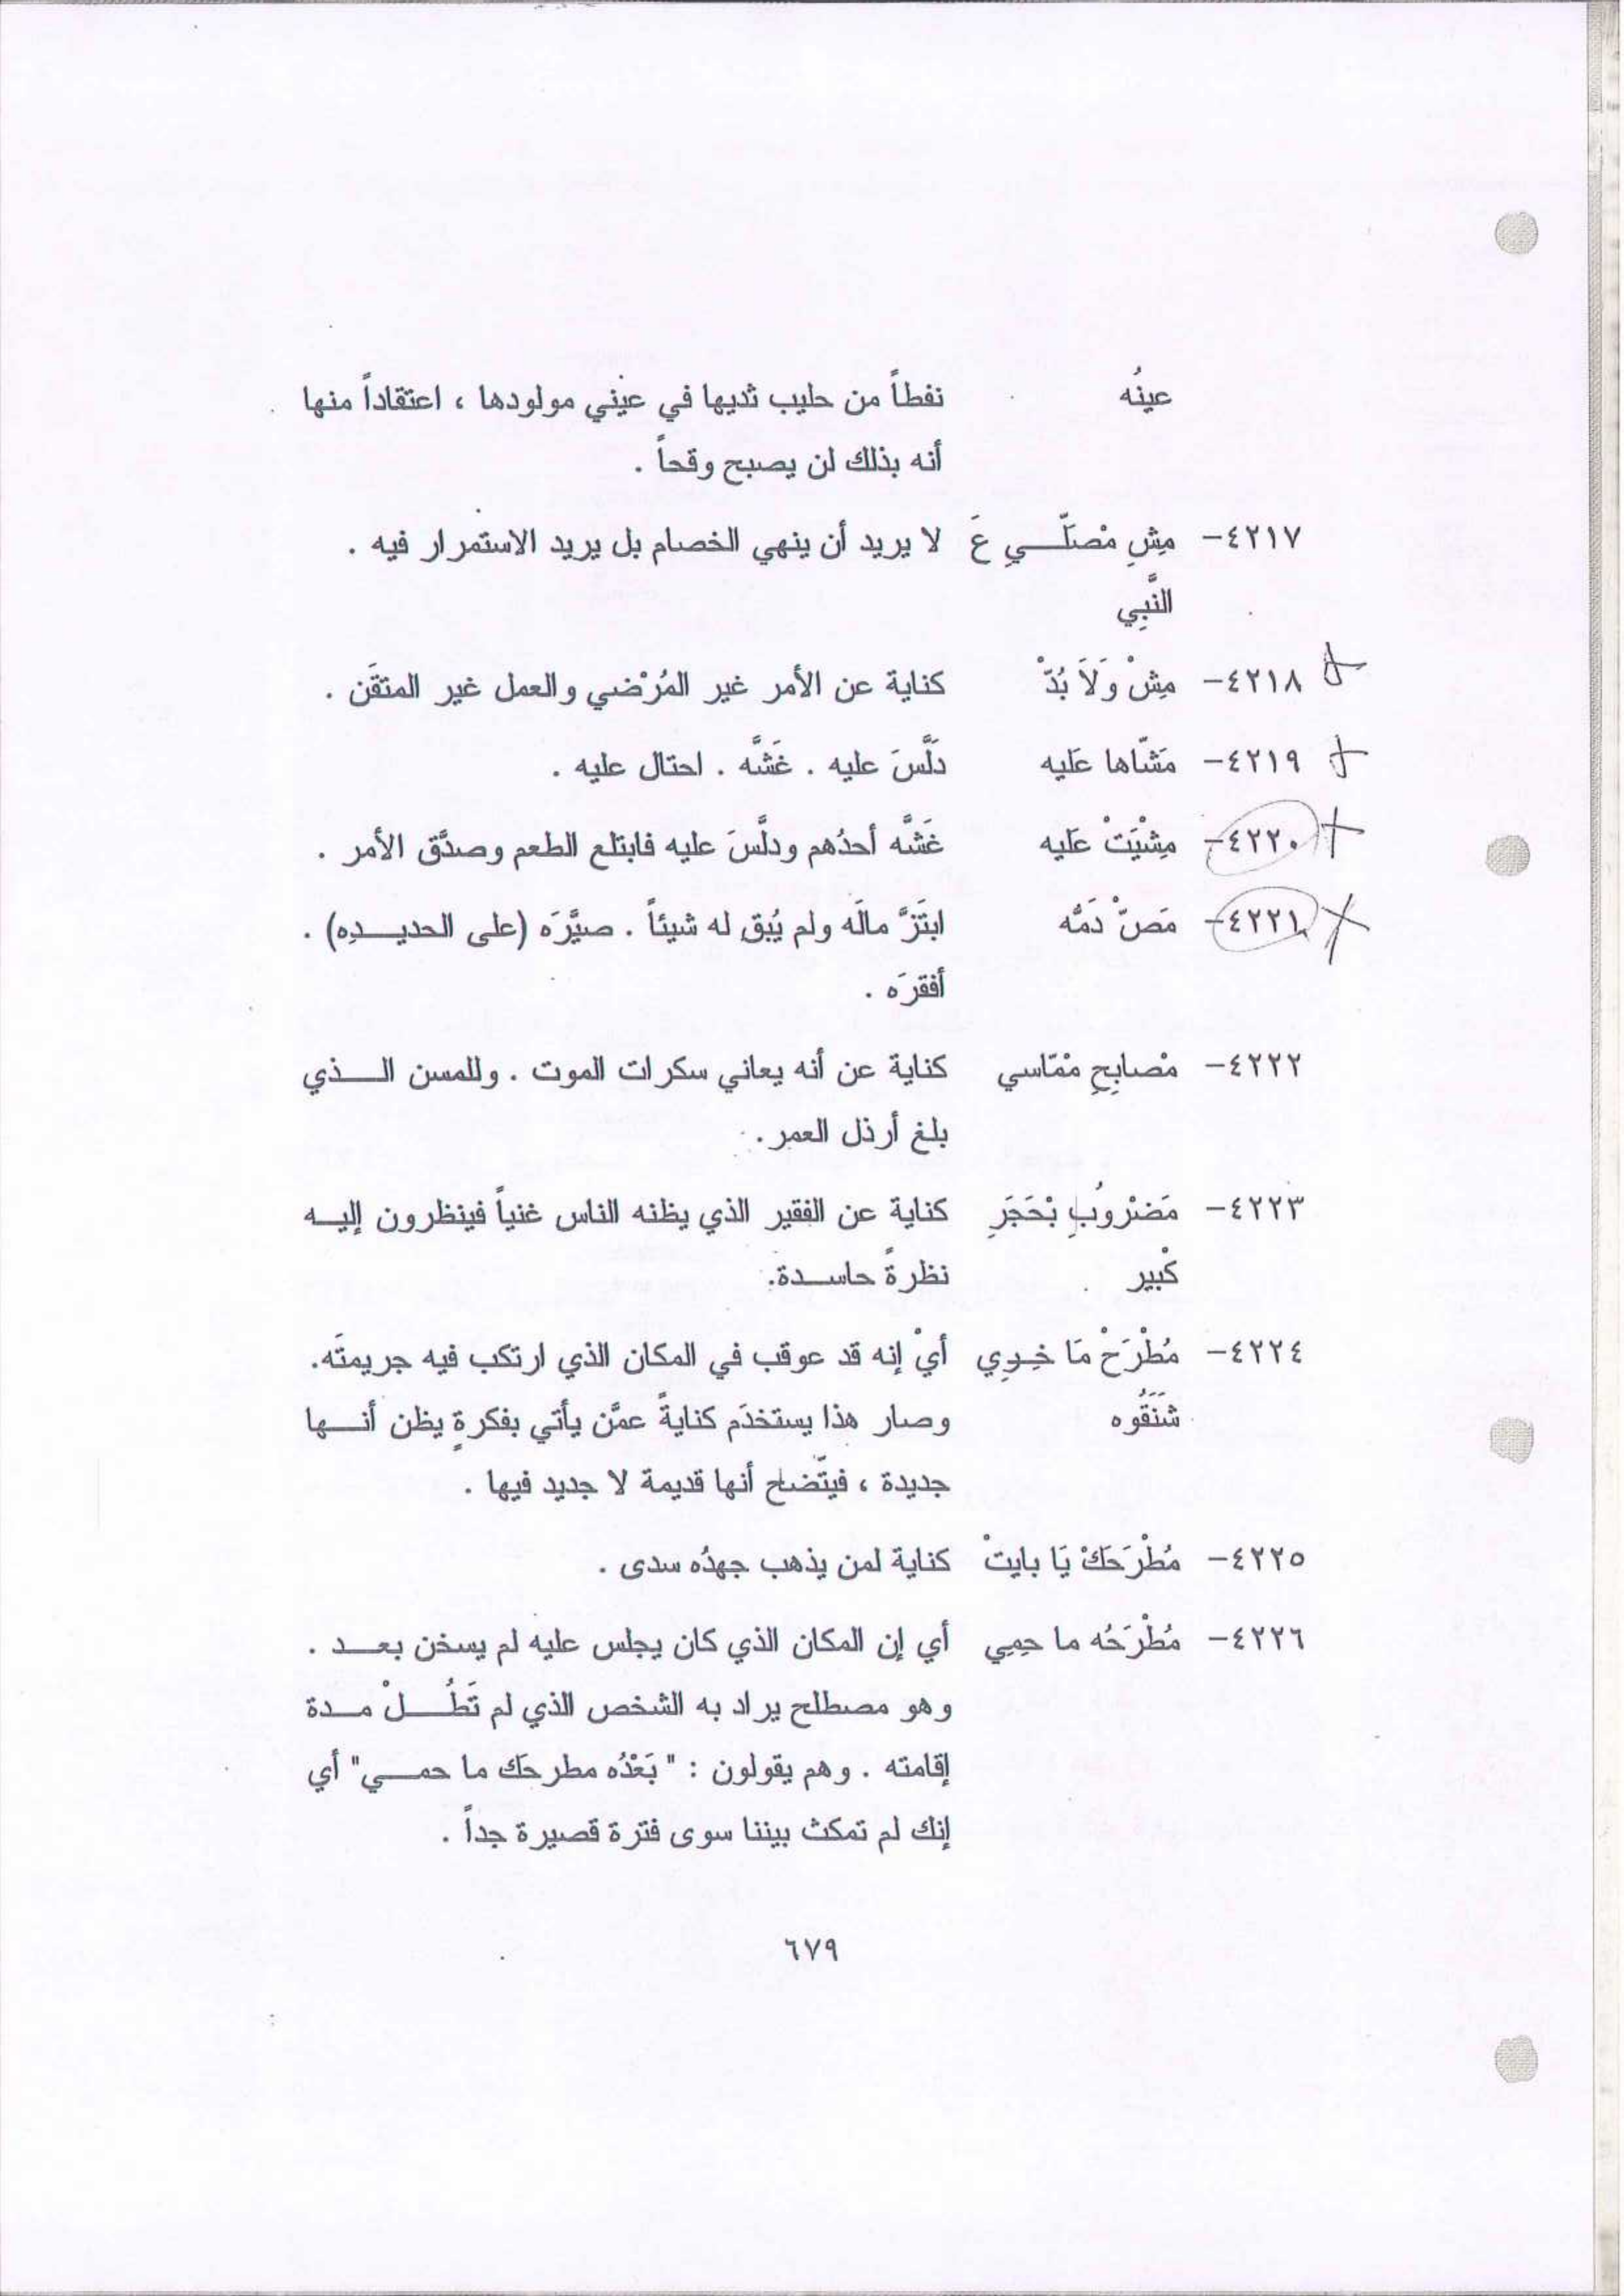 عينُه نفطاً من حليب ثديها في عيني مولودها ، اعتقاداً منها
أنه بذلك لن يصبح وقحاً .
٤٢١٧- مِشِ مْصلّـــي عَ لا يريد أن ينهي الخصام بل يريد الاستمرار فيه .
النَّبِي
٤٢١٨- مِشْ وَلَا بُدّْ كناية عن الأمر غير المُرْضي والعمل غير المتقَن .
٤٢١٩- مَشّاها عَليه دَلَّسَ عليه . غَشَّه . احتال عليه .
٤٢٢٠- مِشْيَتْ عَليه غَشَّه أحدُهم ودلَّسَ عليه فابتلع الطعم وصدَّق الأمر .
٤٢٢١- مَصّْ دَمُّه ابتَزَّ مالَه ولم يُبق له شيئاً . صيَّرَه (على الحديـــدِه) .
أفقرَه .
٤٢٢٢- مْصابِحِ مْمَاسي كناية عن أنه يعاني سكرات الموت . وللمسن الـــذي
بلغ أرذل العمر .
٤٢٢٣- مَضْرُوبِ بْحَجَرِ كناية عن الفقير الذي يظنه الناس غنياً فينظرون إليـــه
كْبير نظرةً حاســدة.
٤٢٢٤- مُطْرَحْ مَا خـِـرِي أيْ إنه قد عوقب في المكان الذي ارتكب فيه جريمتَه.
شَنَقُوه وصار هذا يستخدَم كنايةً عمَّن يأتي بفكرةٍ يظن أنـــها
جديدة ، فيتّضح أنها قديمة لا جديد فيها .
٤٢٢٥- مُطْرَحَكْ يَا بايتْ كناية لمن يذهب جهدُه سدى .
٤٢٢٦- مُطْرَحُه ما حِمِي أي إن المكان الذي كان يجلس عليه لم يسخن بعــد .
وهو مصطلح يراد به الشخص الذي لم تَطُـــلْ مــدة
إقامته . وهم يقولون : " بَعْدُه مطرحَك ما حمـــي" أي
إنك لم تمكث بيننا سوى فترة قصيرة جداً .
٦٧٩